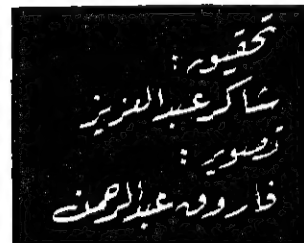 تحقيق :
شاكر عبد العزيز
تصوير :
فاروق عبد الرحمن